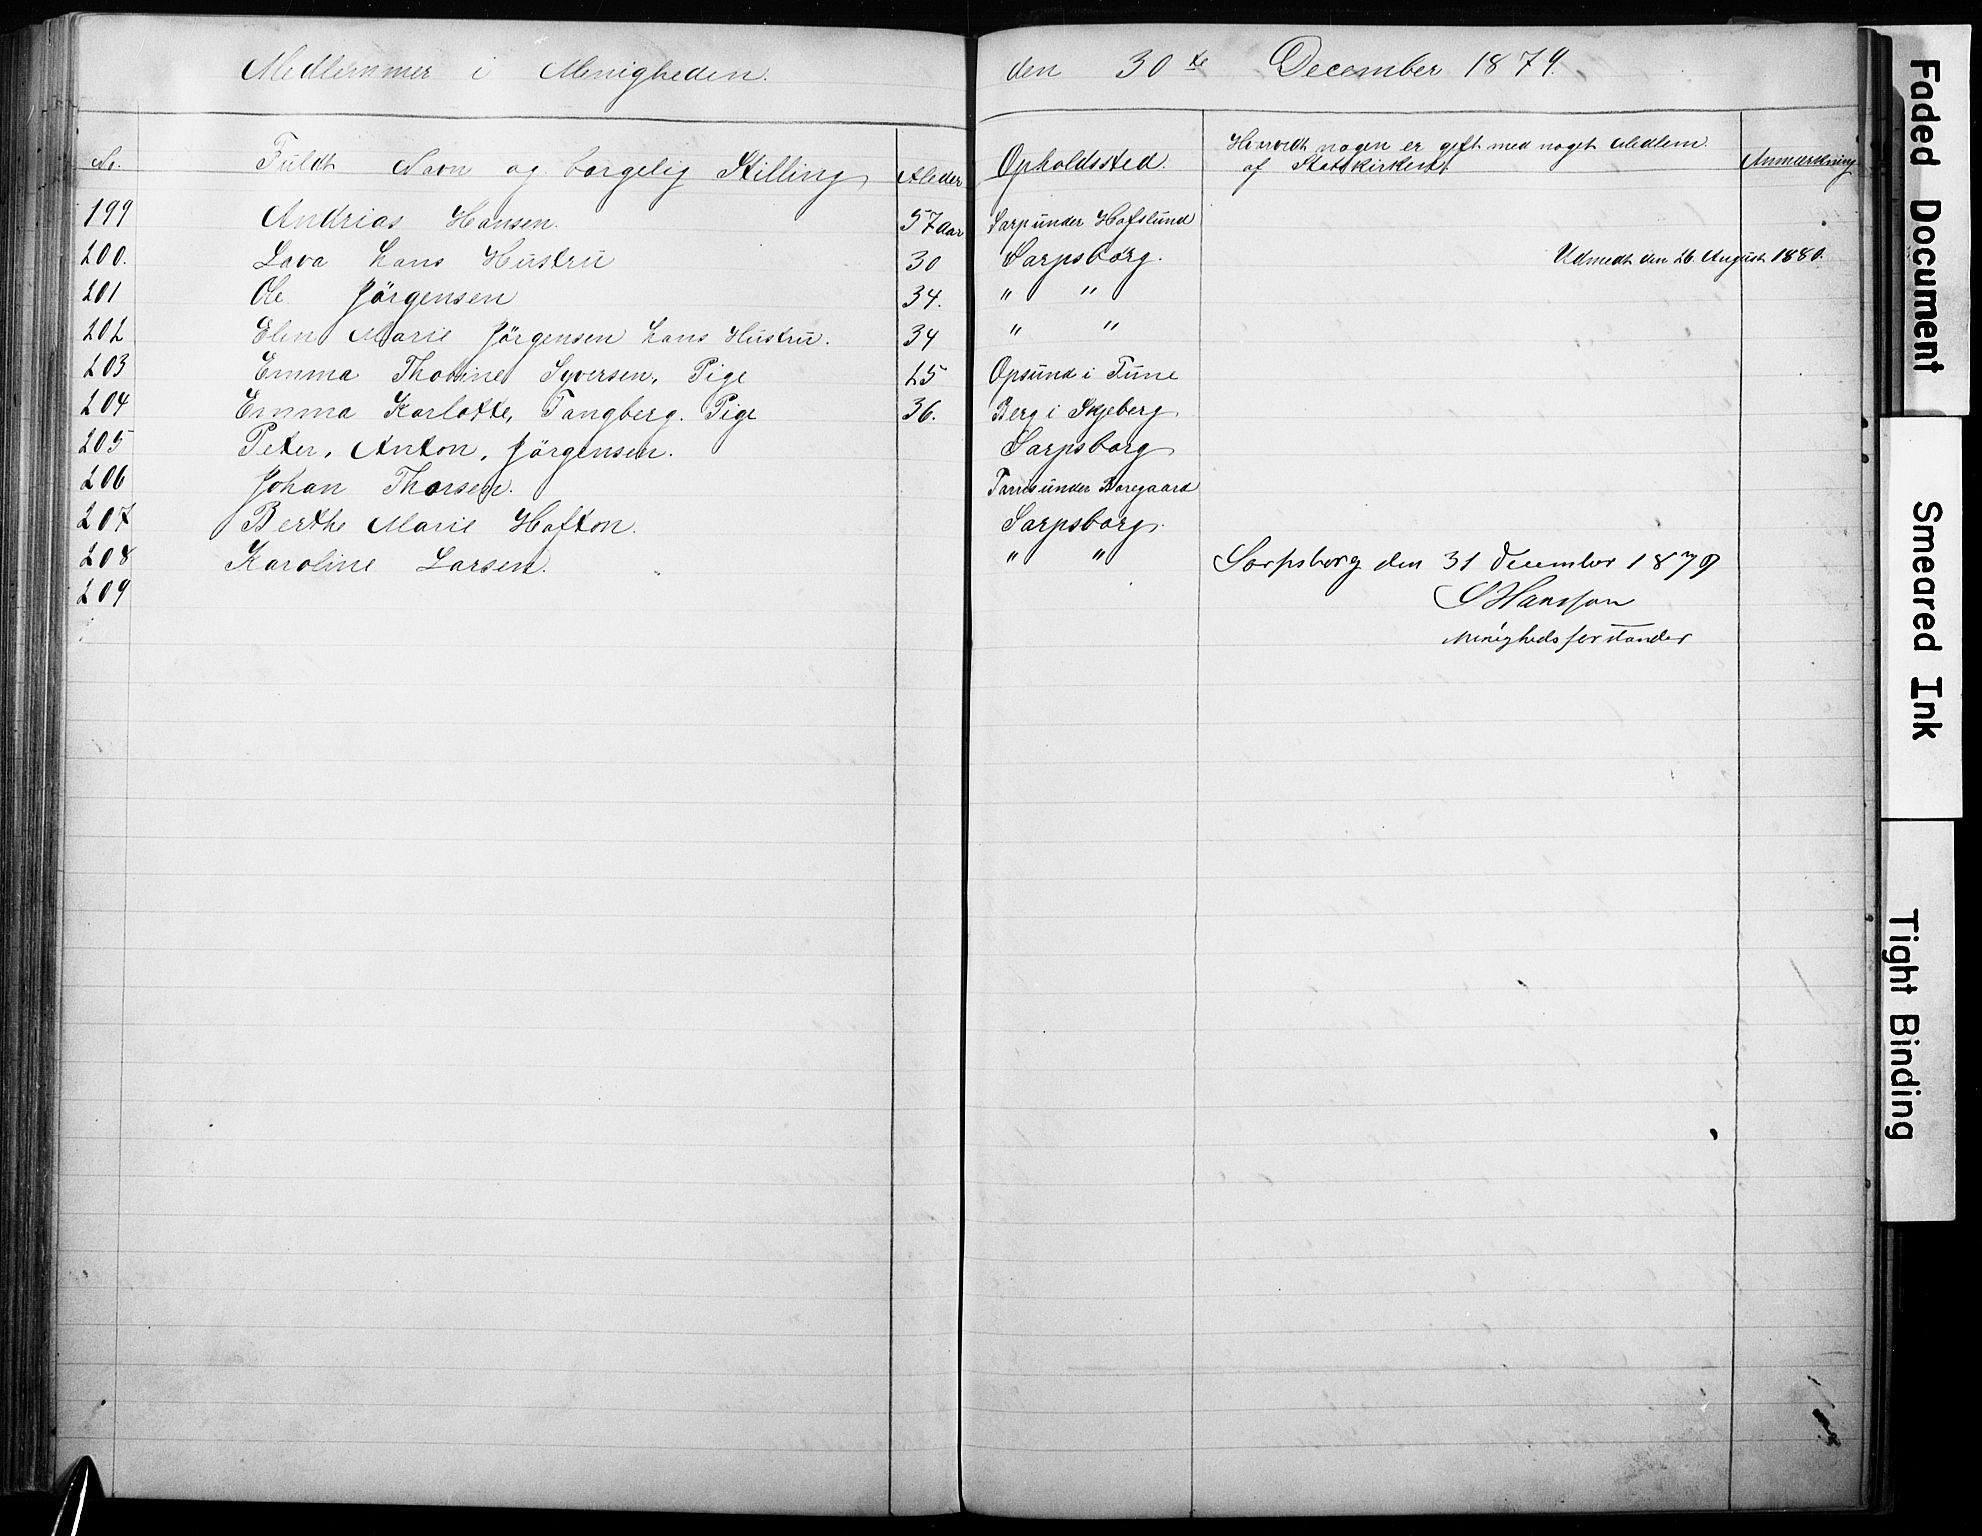 Medlemmer i Menigheden. den 30te December 1879.
No. Fuldt Navn og borgelig Stilling Alder Opholdssted. Hvorvidt nogen er gift med noget Medlem Anmærkning
af Statskirken
199 Andrias Hansen. 57 aar Sarp under Hafslund
200. Lava hans Hustru 30 Sarpsborg. Udmeldt den 26 August 1880.
201 Ole Jörgensen 34. " "
202 Elen Marie Jörgensen hans Hustru. 34 " "
203 Emma Syversen, Pige 25 Opsund i Tune
204 Emma Karlotte, Tangberg. Pige 36. Berg i Skjeberg
205 Peter, Anton, Jörgensen. Sarpsborg
206 Johan Thorsen. under Boregaard
207 Berthe Marie Hafton. Sarpsborg.
208 Karoline Larsen. " " Sarpsborg den 31 December 1879
209
S Hansson
Menighedsforstander
Faded Document
Smeared Ink
Tight Binding